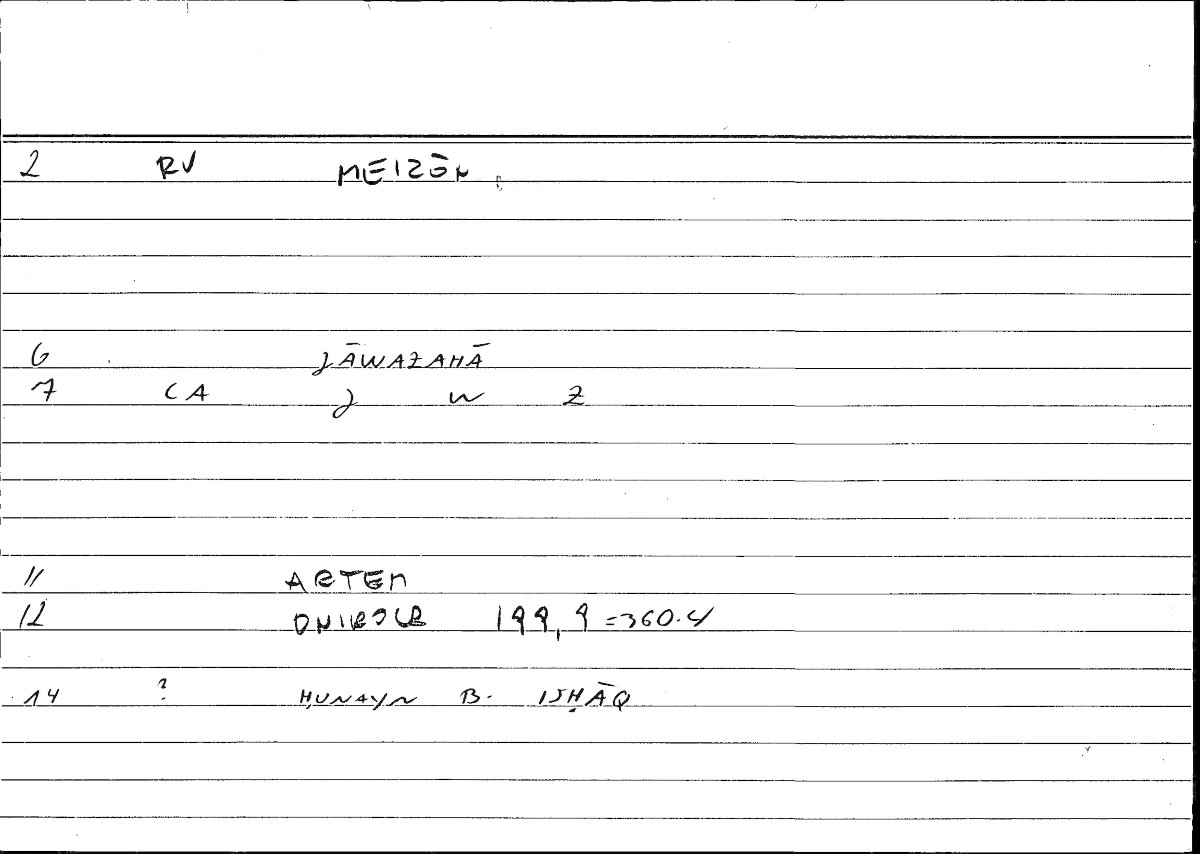 2 RV MEIZŌN
6 JĀWAZAHĀ
7 CA J W Z
11 ARTEM
12 ONIROCR 199,9=360.4
14 ? ḤUNAYN B. ISḤĀQ